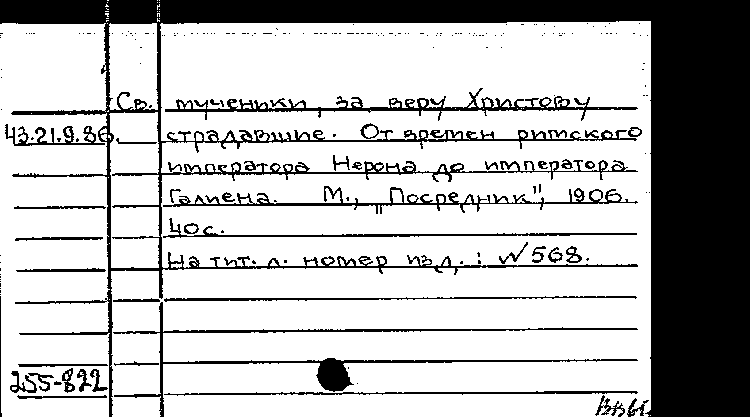 Св. мученики, за веру Христову
43.21.9.86. страдавшие. От времен римского
императора Нерона до императора
Галиена. М., „Посредник", 1906.
40с.
На тит. л. номер изд.: № 568.
255-822